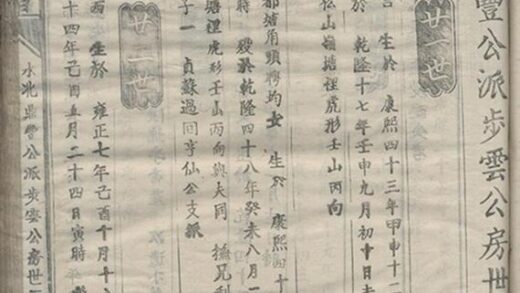 豐公派步雲公房世
廿一世
生於 康熙四十三年甲申十一
於乾隆十七年壬申九月初十日未
山嶺塘裡虎形壬山丙向
都埔角頭 均女 生於 康熙四十
時 殁於乾隆四十八年癸卯八月
塘裡虎形壬山丙向與夫同 撫兄利
子一 貞蘇過回 仙公支派
廿二世
生於 雍正七年己酉十月十
十四年己酉五月二十四日寅時
水北 鼎豐公派步雲公房世